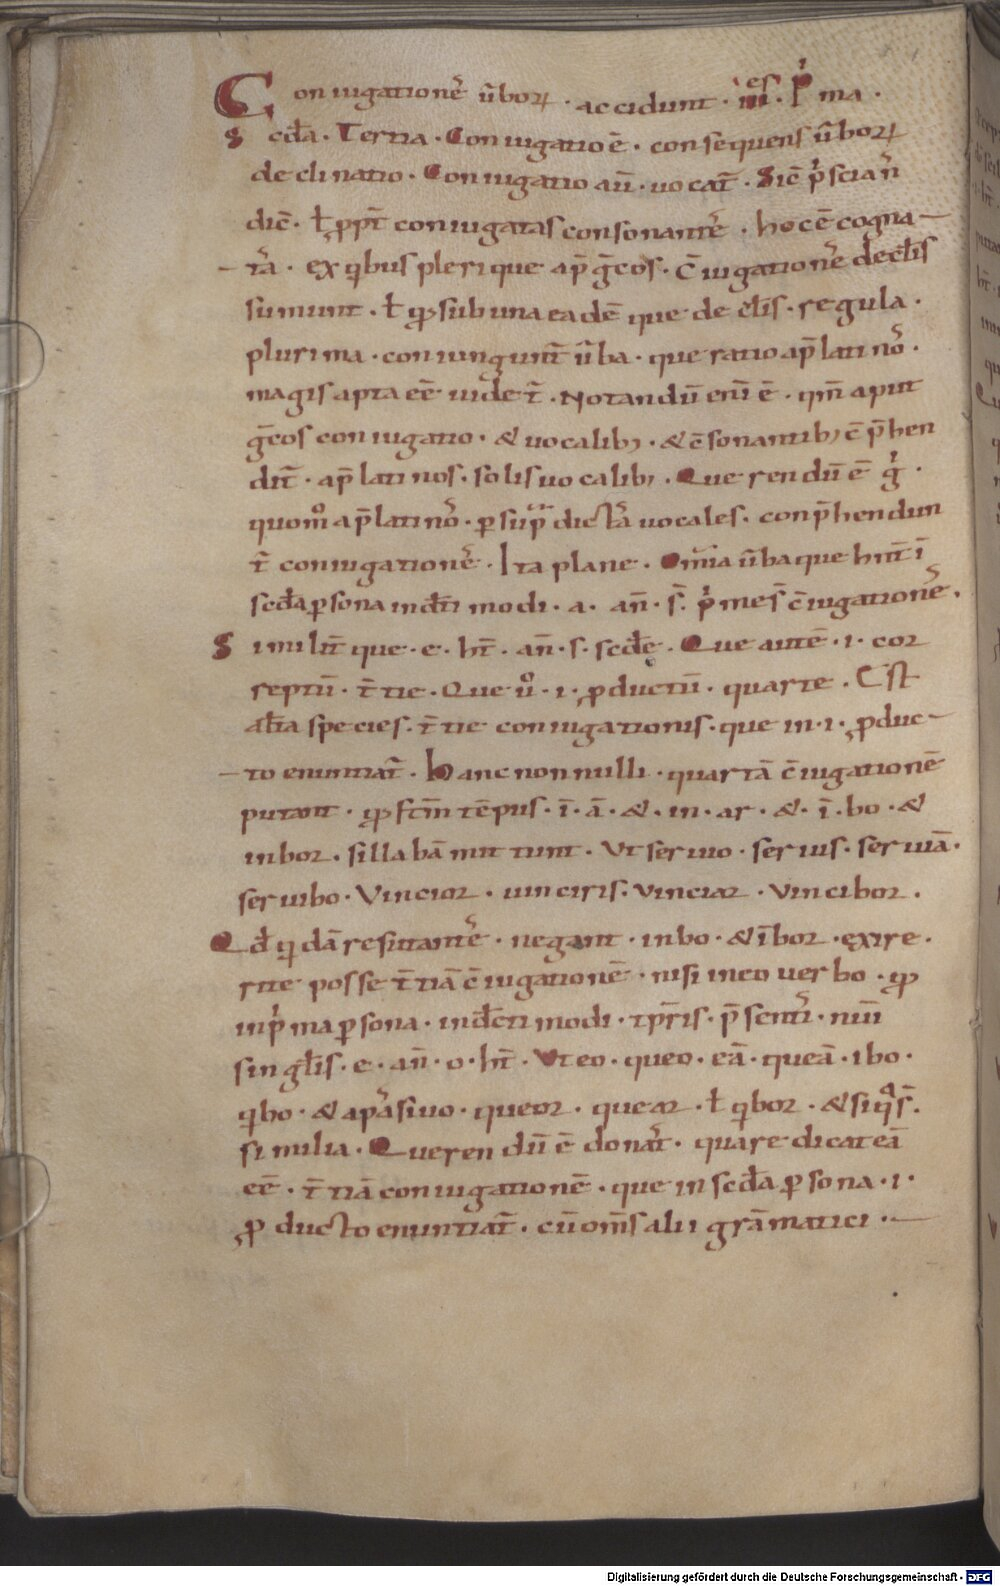 Coniugationeſ ūboꝝ · accidunt · iiieſ · Pͥma ·
Scd̄a · Tertia · Coniugatio ē · conſequenſ ūboꝝ
declinatio · Coniugatio aū · vocat̄ · Sic̄ pͥſcian̄
dic̄ · ł ꝓpt̄ coniugataſ conſonanteſ · hoc ē cogna-
-taſ · ex qibuſ plerique ap̄ ḡcoſ · c̄iugationeſ decl̄iſ
ſumunt · ł ꝙ ſub una eadē que decl̄iſ · regula ·
plurima · coniungunt̄ ūba · que ratio ap̄ latinoſ ·
magiſ apta eē uidet̄ · Notandū eni ē · qm̄ aput
ḡcoſ coniugatio · & uocalib; · & c̄ſonantib; c̄p̄hen
dit̄ · ap̄ latinoſ · ſoliſ uocalib; · Querendū ē gͥ ·
quom̊ ap̄ latinoſ · ꝑ ſupradictaſ uocaleſ · conp̄hendun
t̄ coniugationeſ · Ita plane · Omīa ūba que hn̄t ī
ſcd̄a ꝑſona indc̄ti modi · a · an̄ · ſ · pͥmeſ c̄iugationeſ ·
Similit̄ que · e · hn̄t · an̄ · ſ · ſcd̄e · Que autē · i · cor
reptū · t̄tie · Que ů · i · ꝓductū · quarte · Eſt
alia ſpecieſ · t̄tie coniugationiſ · que in · i · ꝓduc-
-to enuntiat̄ · Hanc non nulli · quartā c̄iugationē
putant · ꝙ fut̄m tēpuſ · ī · ā · & · in · ar · & · ī · bo · &
in bor · ſillabā mittunt · Vt ſeruio · ſeruiſ · ſeruiā ·
ſeruibo · Vincior · uinciriſ · vinciar · vincibor ·
Qd̄ qidā reſittanteſ · negant · in bo · & ī bor · exire ·
rite poſſe t̄tiā c̄iugationē · niſi in eo uerbo · ꝙ
in pͥma ꝑſona · indc̄ti modi · tp̄riſ · p̄ſentiſ · nuī
ſingl̄iſ · e · an̄ · o · ht̄ · Vt eo · queo · eā · queā · ibo ·
qibo · & apaſiuo · queor · quear · ł qibor · & ſiqͣ ſ̄ ·
ſimilia · Querendū ē donat̄ · quare dicat eā
eē · t̄tiā coniugationē · que in ſcd̄a ꝑſona · i ·
ꝓducto enuntiat̄ · cū om̄ſ alii grāmatici ·-
Digitalisierung gefördert durch die Deutsche Forschungsgemeinschaft - DFG